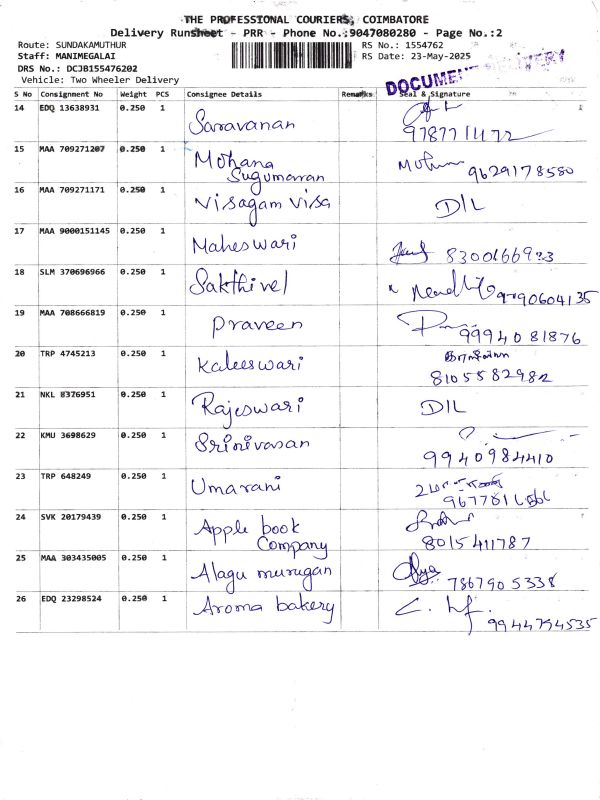 THE PROFESSIONAL COURIERS, COIMBATORE
Delivery Runsheet - PRR - Phone No.:9047080280 - Page No.:2
Route: SUNDAKAMUTHUR
RS No.: 1554762
Staff: MANIMEGALAI
RS Date: 23-May-2025
DRS No.: DCJB155476202
Vehicle: Two Wheeler Delivery
DOCUMENT DELIVERY
S No Consignment No Weight PCS Consignee Details Remarks Seal & Signature
14 EDQ 13638931 0.250 1 Saravanan
15 MAA 709271207 0.250 1 Mohana Sugumaran 9629178580
16 MAA 709271171 0.250 1 Visagam Visa D/L
17 MAA 9000151145 0.250 1 Maheswari
18 SLM 370696966 0.250 1 Sakthivel
19 MAA 708666819 0.250 1 Praveen 9994081876
20 TRP 4745213 0.250 1 Kaleeswari 8105582982
21 NKL 8376951 0.250 1 Rajeswari D/L
22 KMU 3698629 0.250 1 Srinivasan 9940984410
23 TRP 648249 0.250 1 Umarani
24 SVK 20179439 0.250 1 Apple book Company 8015411787
25 MAA 303435005 0.250 1 Alagu murugan 7867905338
26 EDQ 23298524 0.250 1 Aroma bakery 9944794535